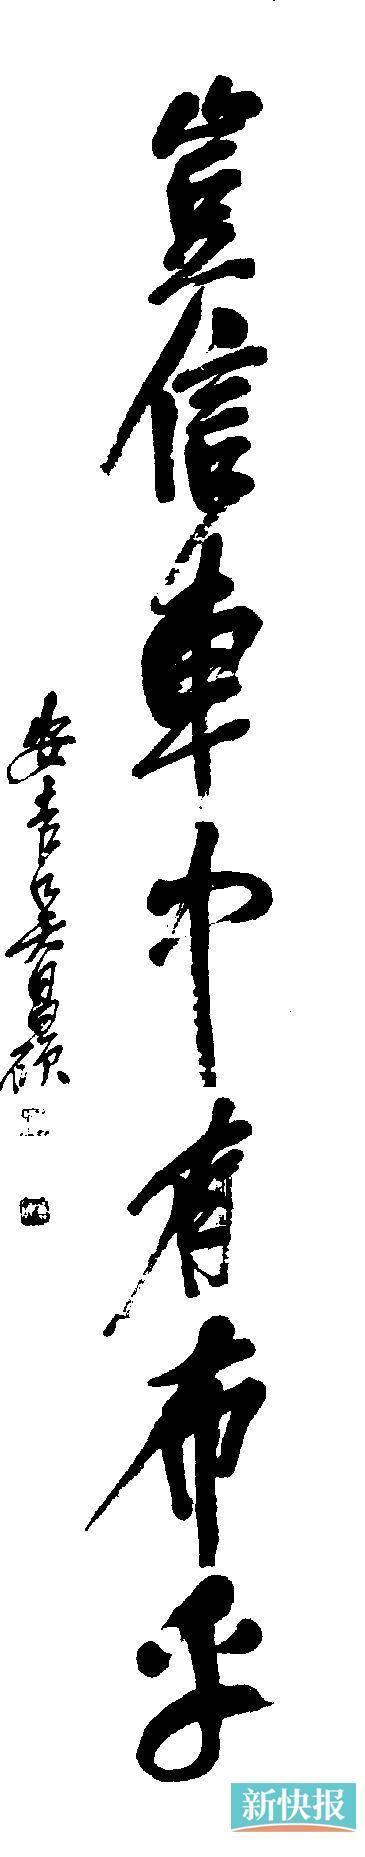 豈信車中有布乎
安吉吴昌碩
新快报